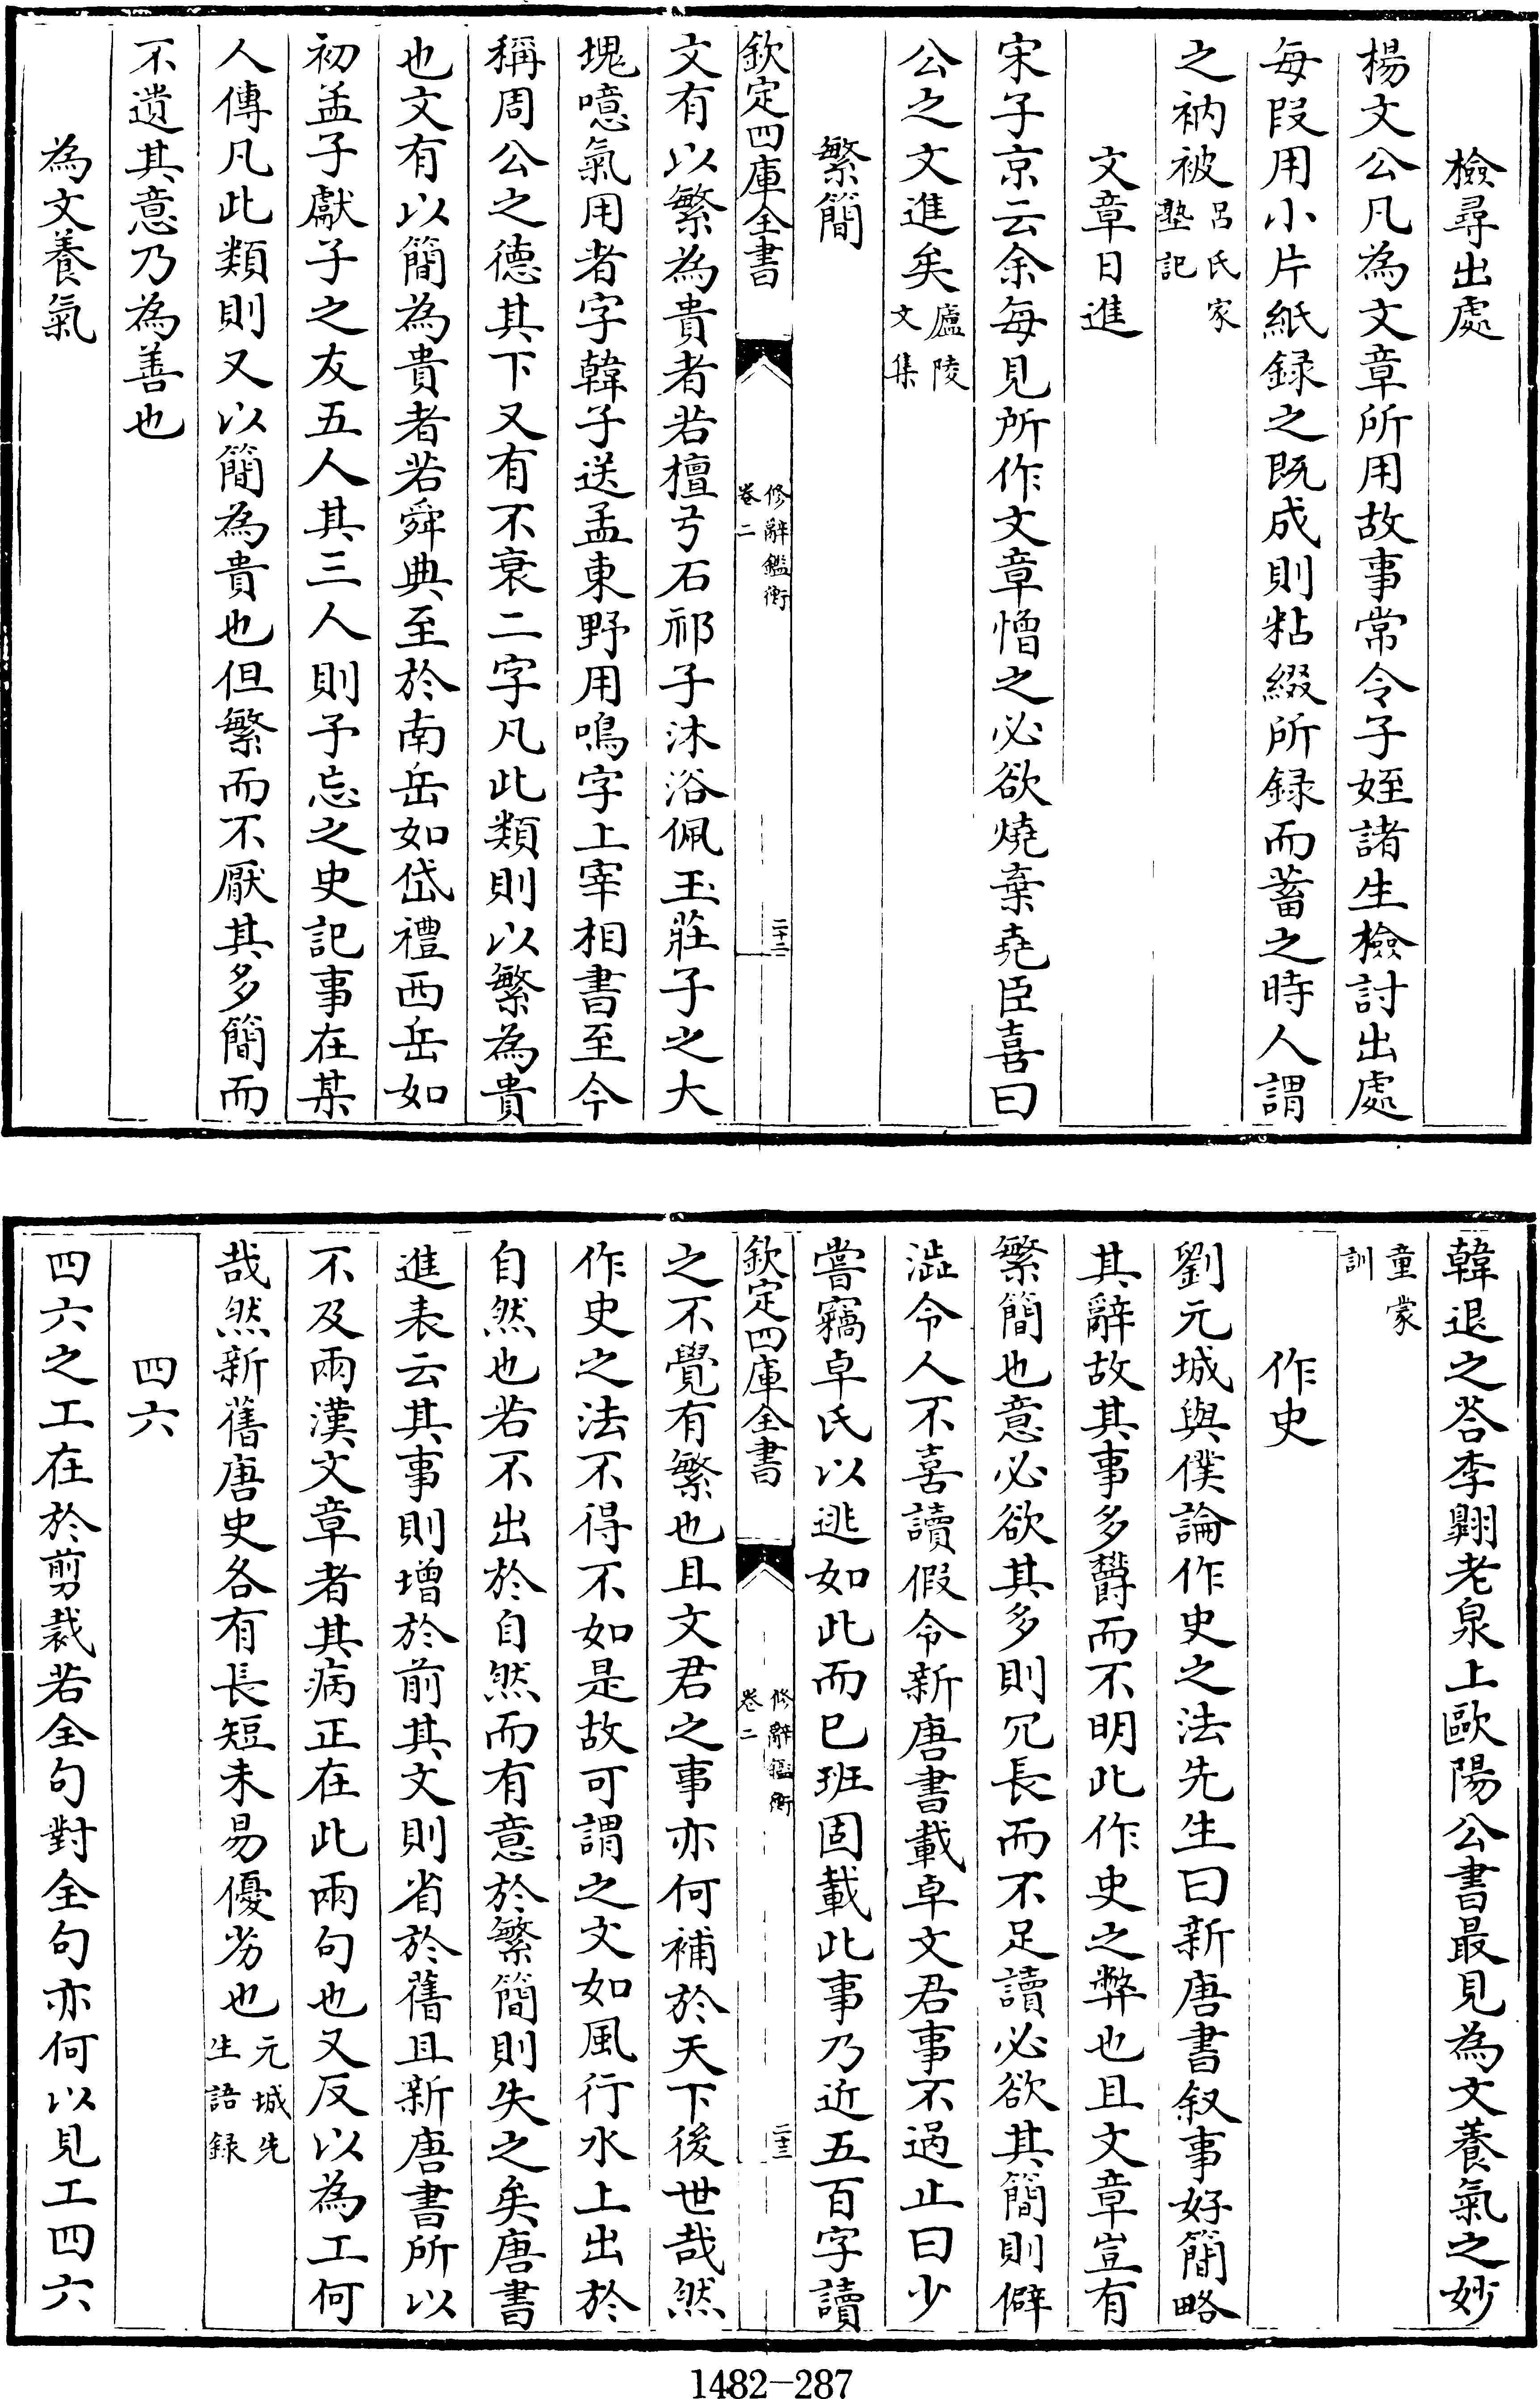 檢尋出處
楊文公凡為文章所用故事常令子姪諸生檢討出處
每叚用小片紙録之既成則粘綴所録而蓄之時人謂
之衲被呂氏家塾記
文章日進
宋子京云余每見所作文章憎之必欲燒棄堯臣喜曰
公之文進矣廬陵文集
繁簡
欽定四庫全書
修辭鑑衡
卷二
二十二
文有以繁為貴者若檀弓石祁子沐浴佩玉莊子之大
塊噫氣用者字韓子送孟東野用鳴字上宰相書至今
稱周公之德其下又有不衰二字凡此類則以繁為貴
也文有以簡為貴者若舜典至於南岳如岱禮西岳如
初孟子獻子之友五人其三人則予忘之史記事在某
人傳凡此類則又以簡為貴也但繁而不厭其多簡而
不遺其意乃為善也
為文養氣
韓退之荅李翺老泉上歐陽公書最見為文養氣之妙
童蒙訓
作史
劉元城與僕論作史之法先生曰新唐書叙事好簡略
其辭故其事多欝而不明此作史之弊也且文章豈有
繁簡也意必欲其多則冗長而不足讀必欲其簡則僻
澁令人不喜讀假令新唐書載卓文君事不過止曰少
嘗竊卓氏以逃如此而已班固載此事乃近五百字讀
欽定四庫全書
修辭鑑衡
卷二
二十三
之不覺有繁也且文君之事亦何補於天下後世哉然
作史之法不得不如是故可謂之文如風行水上出於
自然也若不出於自然而有意於繁簡則失之矣唐書
進表云其事則增於前其文則省於舊且新唐書所以
不及兩漢文章者其病正在此兩句也又反以為工何
哉然新舊唐史各有長短未易優劣也元城先生語録
四六
四六之工在於剪裁若全句對全句亦何以見工四六
1482-287